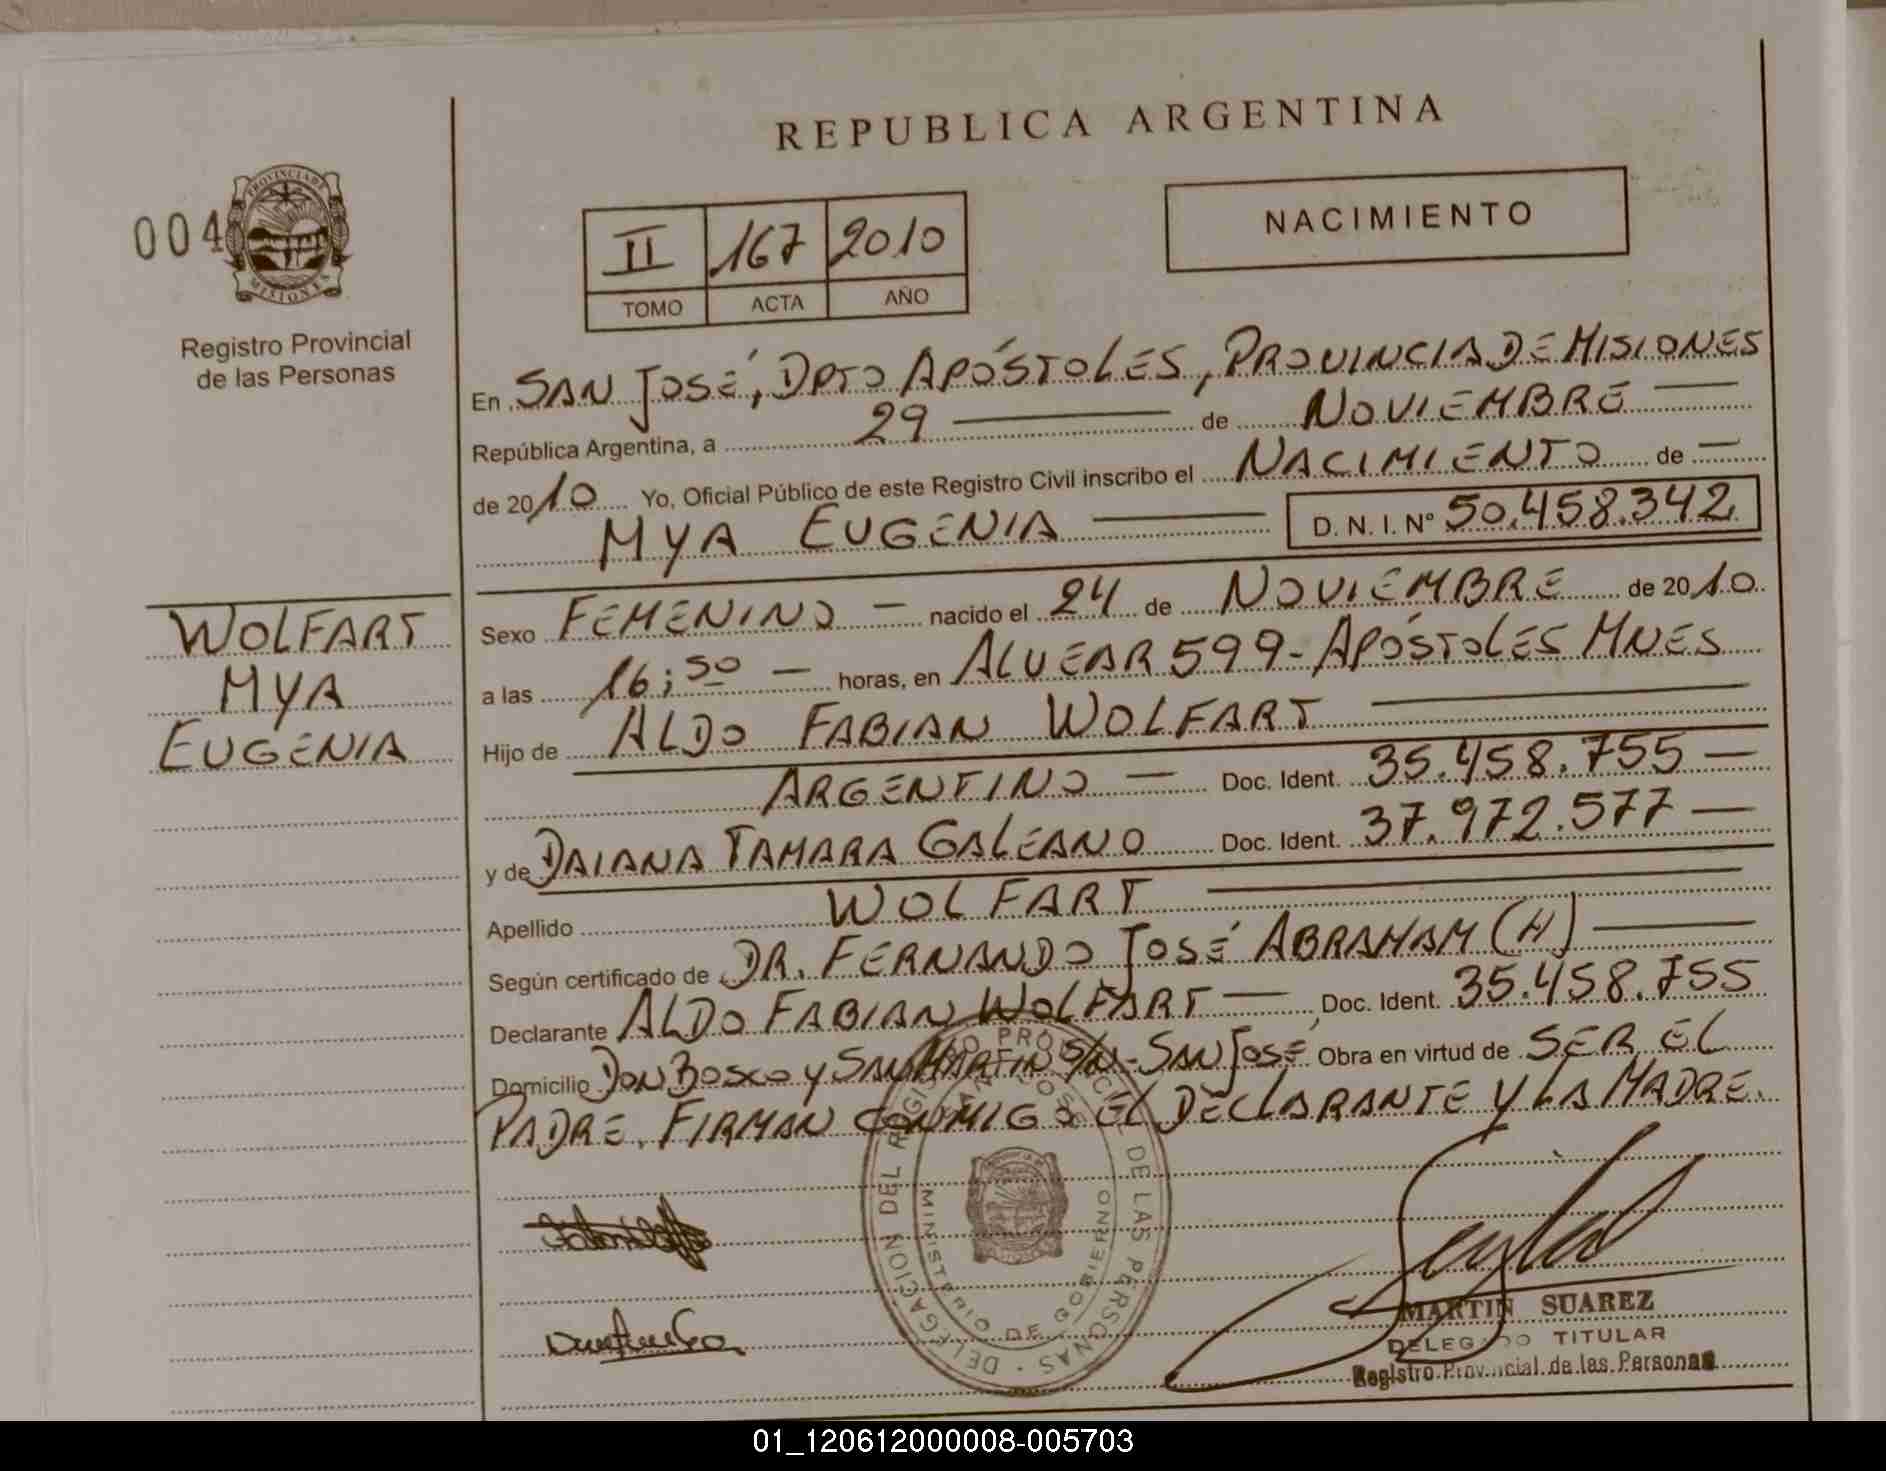 REPUBLICA ARGENTINA
004
PROVINCIA DE
MISIONES
Registro Provincial
de las Personas
II 167 2010
TOMO ACTA AÑO
NACIMIENTO
En SAN JOSÉ, DPTO APÓSTOLES, PROVINCIA DE MISIONES
República Argentina, a 29 — de NOVIEMBRE —
de 2010 Yo, Oficial Público de este Registro Civil inscribo el NACIMIENTO de —
MYA EUGENIA — D. N. I. Nº 50.458.342
WOLFART
MYA
EUGENIA
Sexo FEMENINO — nacido el 24 de NOVIEMBRE de 2010
a las 16:50 — horas, en ALVEAR 599 - APÓSTOLES MNES
Hijo de ALDO FABIAN WOLFART —
ARGENTINO — Doc. Ident. 35.458.755 —
y de DAIANA TAMARA GALEANO Doc. Ident. 37.972.577 —
Apellido WOLFART —
Según certificado de DR. FERNANDO JOSÉ ABRAHAM (H) —
Declarante ALDO FABIAN WOLFART — Doc. Ident. 35.458.755
Domicilio DON BOSCO Y SAN MARTIN S/N - SAN JOSÉ Obra en virtud de SER EL
PADRE. FIRMAN CONMIGO EL DECLARANTE Y LA MADRE.
DELEGACION DEL REGISTRO PROVINCIAL DE LAS PERSONAS
SAN JOSE
MINISTERIO DE GOBIERNO
MARTIN SUAREZ
DELEGADO TITULAR
Registro Provincial de las Personas
01_120612000008-005703